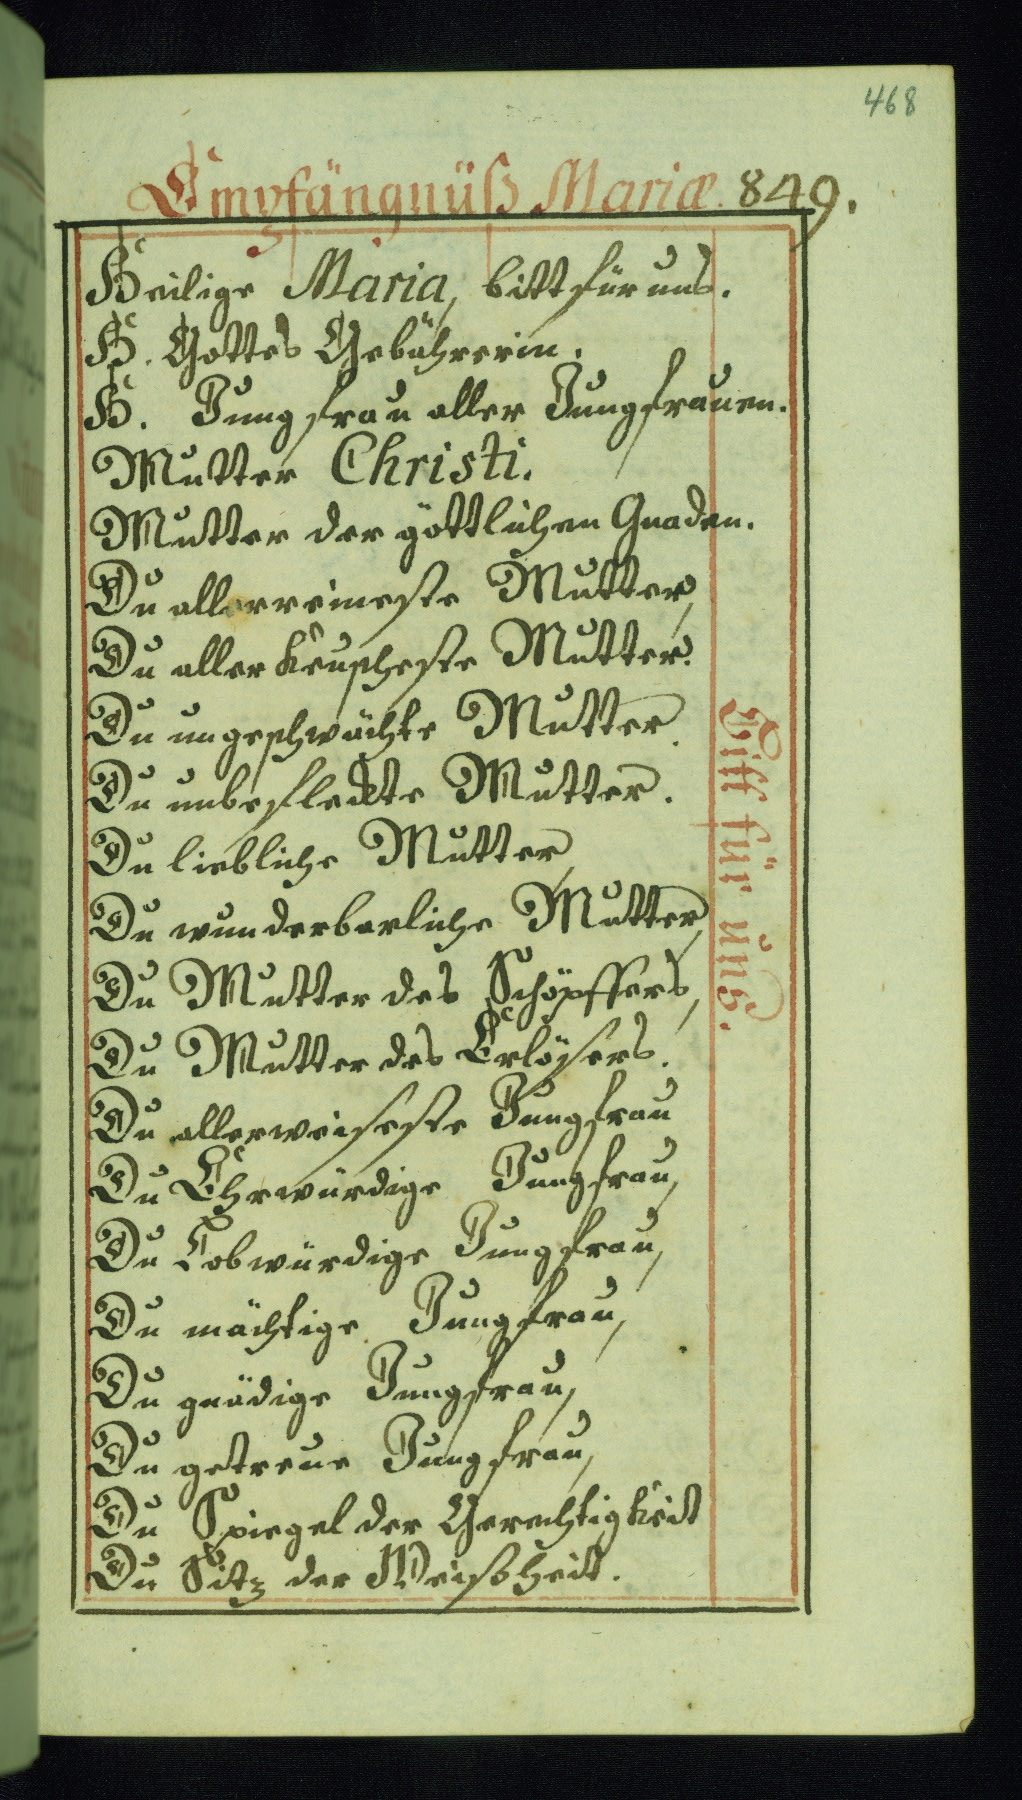 468
Empfängnüß Mariæ. 849.
Heilige Maria, bitt für uns.
H. Gottes Gebährerin.
H. Jungfrau aller Jungfrauen.
Mutter Christi.
Mutter der göttlichen Gnaden.
Du allerreineste Mutter,
Du aller keuscheste Mutter.
Du ungeschwächte Mutter.
Du unbefleckte Mutter.
Du liebliche Mutter,
Du wunderbarliche Mutter,
Du Mutter des Schöpffers,
Du Mutter des Erlösers.
Du allerweiseste Jungfrau
Du Ehrwürdige Jungfrau,
Du Lobwürdige Jungfrau,
Du mächtige Jungfrau,
Du gnädige Jungfrau,
Du getreue Jungfrau,
Du Spiegel der Gerechtigkeit
Du Sitz der Weißheit.
Bitt für uns.